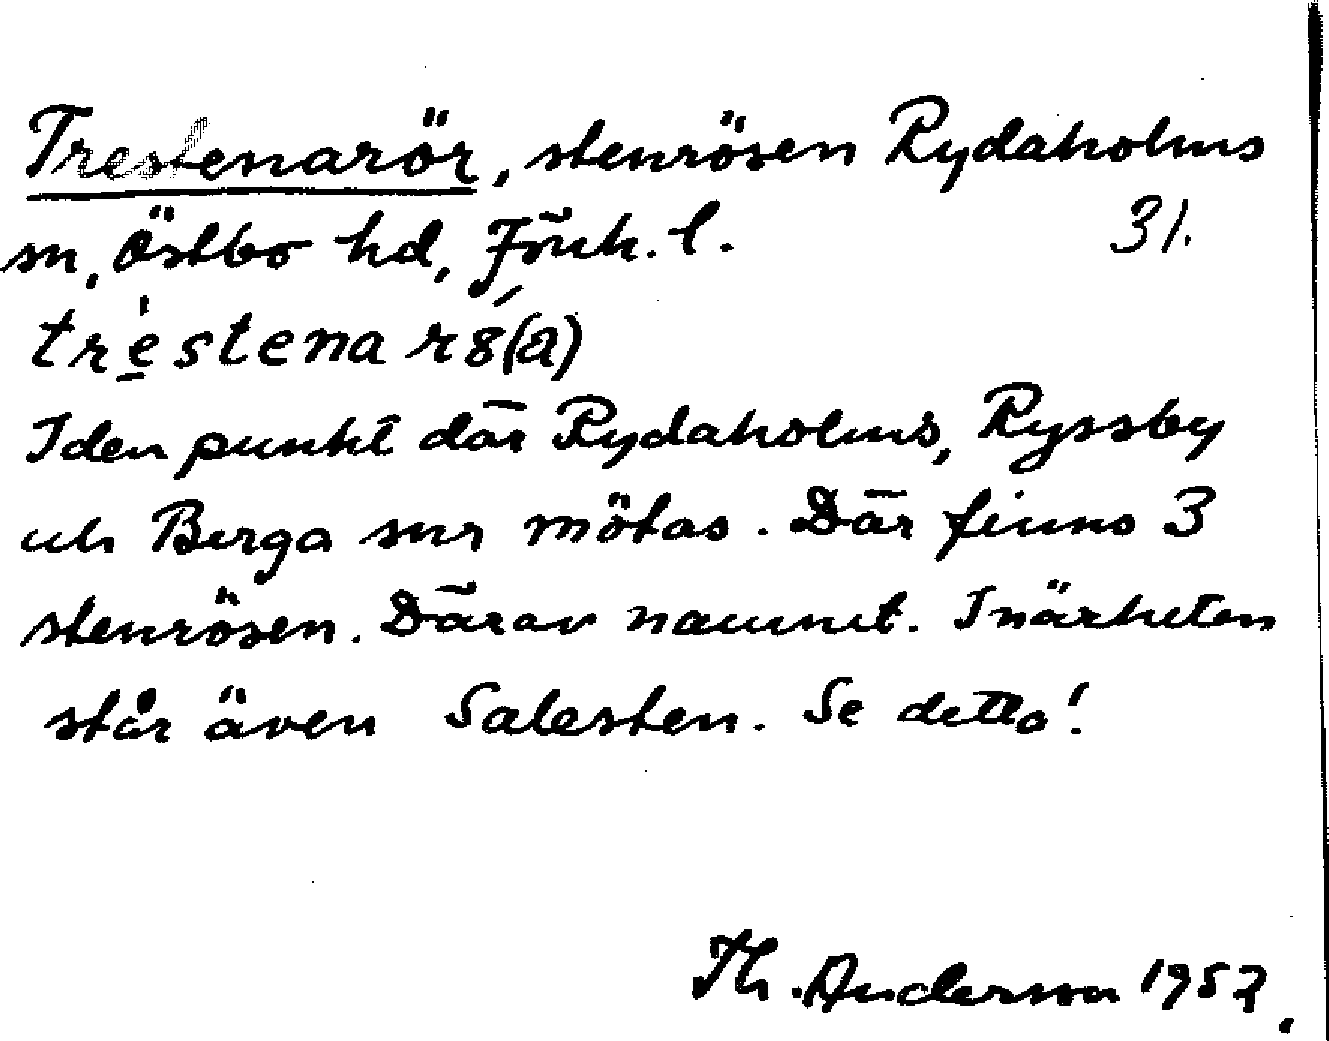 Trestenarör, stenrösen Rydaholms
sn, Östbo hd, Jönk. l. 31.
trestena r8(a)
I den punkt där Rydaholms, Ryssby
och Berga snr mötas. Där finns 3
stenrösen. Därav namnet. I närheten
står även Salesten. Se detta!
Th. Anderson 1957.